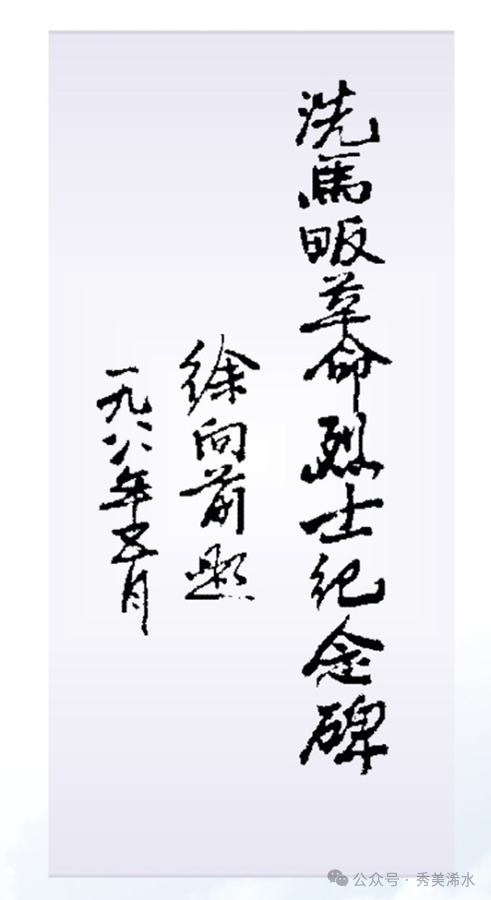 洗馬畈革命烈士纪念碑
徐向前题
一九八八年五月
公众号 · 秀美浠水